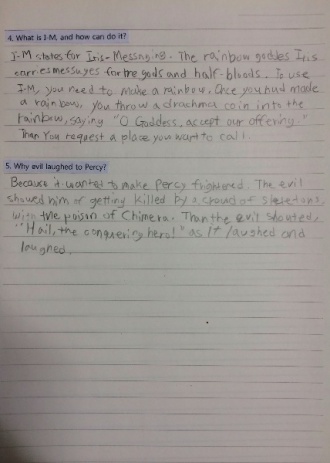 4. What is I-M, and how can do it?
I-M states for Iris-Messaging. The rainbow goddes Iris
carries messages for the gods and half-bloods. To use
I-M, you need to make a rainbow. Once you had made
a rainbow, you throw a drachma coin into the
rainbow, saying "O Goddess, accept our offering."
Than You request a place you want to call.
5. Why evil laughed to Percy?
Because it wanted to make Percy frightened. The evil
showed him of getting killed by a crowd of skeletons
with the poison of Chimera. Than the evil shouted,
"Hail, the conquering hero!" as It laughed and
laughed.